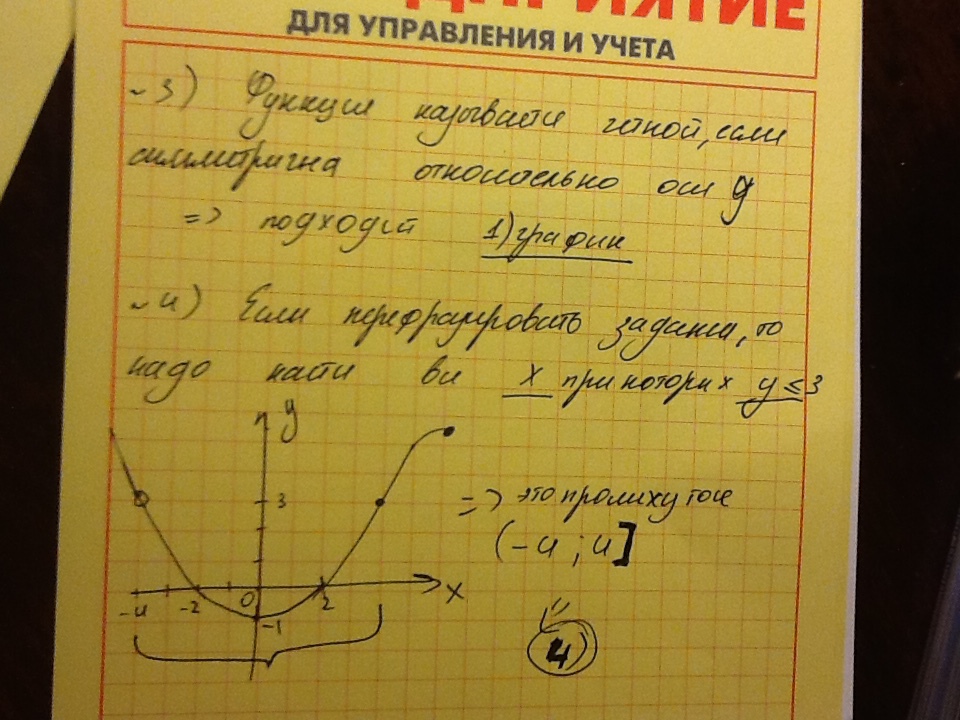 ПРИЯТИЕ
ДЛЯ УПРАВЛЕНИЯ И УЧЕТА
~3) Функция называется четной, если
симметрична относительно оси y
=> подходит 1) график
~4) Если перефразировать задание, то
надо найти все x при которых y ≤ 3
y
3
-4 -2 0 2 x
-1
=> это промежуток
(-4 ; 4]
4)